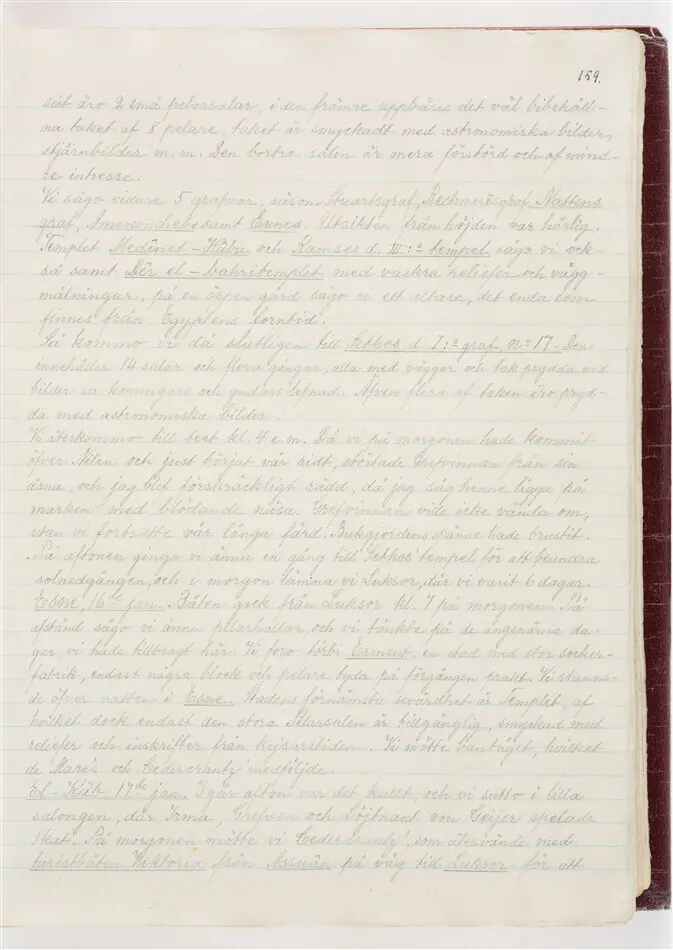 159.
sist äro 2 små pelarsalar, i den främre uppbäres det väl bibehåll-
na taket af 8 pelare, taket är smyckadt med astronomiska bilder,
stjärnbilder m. m. Den bortre salen är mera förstörd och af mind-
re intresse.
Vi sågo vidare 5 grafvar, såsom Stuartsgraf, Rechmerêsgraf, Nattens
graf, samt Ennes. Utsikten från höjden var härlig.
Templet Medînet-Habu och Ramses d. III:s tempel sågo vi ock-
så samt Dêr el-bahritemplet, med vackra reliefer och vägg-
målningar, på en öppen gård sågo vi ett altare, det enda som
finnes från Egyptens forntid.
Så kommo vi då slutligen till Sethos d. I:s graf, No 17. Den
innehåller 14 salar och flera gångar, alla med väggar och tak prydda med
bilder ur konungars och gudars lefnad. Äfven flera af taken äro pryd-
da med astronomiska bilder.
Vi återkommo till kl. 4 e. m. Då vi på morgonen hade kommit
öfver Nilen och just börjat vår ridt, störtade Grefvinnan från sin
åsna, och jag blef förskräckligt rädd, då jag såg henne ligga på
marken med blödande näsa. Grefvinnan ville icke vända om,
utan vi fortsatte vår långa färd. Bukgjordens hade brustit.
På aftonen gingo vi ännu en gång till Sethos' tempel för att beundra
solnedgången, och i morgon lämna vi Luksor, där vi varit 6 dagar.
Esne, 16de jan. Båten gick från Luksor kl. 7 på morgonen. På
afstånd sågo vi ännu pelarhallar, och vi tänkte på de angenäma da-
gar, vi hade tillbragt här. Vi foro förbi Erment, en stad med stor socker-
fabrik, endast några block och pelare tyda på förgången prakt. Vi stanna-
de öfver natten i Esne. Stadens förnämsta sevärdhet är Templet, af
hvilket dock endast den stora Pelarsalen är tillgänglig, smyckad med
reliefer och inskrifter från kejsaretiden. Vi mötte båttåget, hvilket
de Maré's och Cedercrantz' medföljde.
El-Kâb, 17de jan. I går afton var det kallt, och vi sutto i lilla
salongen, där Irma, Grefven och Löjtnant von Geijer spelade
Skat. På morgonen mötte vi Cedercrantz', som återvände med
turistbåten Viktoria från Assuân på väg till Luksor för att